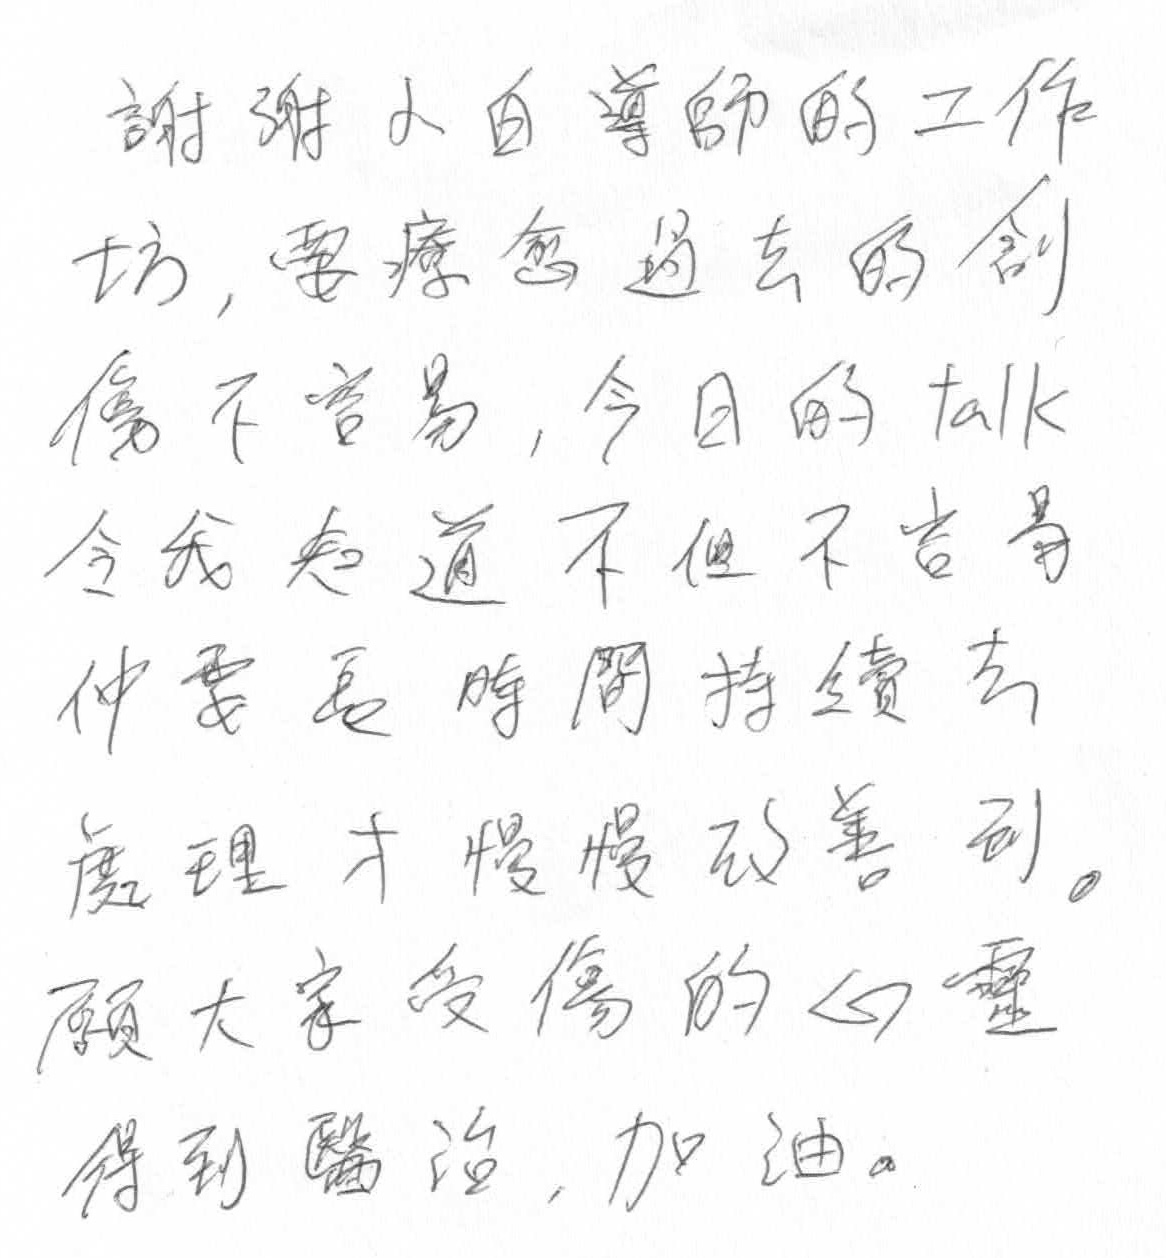 謝謝小白導師的工作
坊，要療愈過去的創
傷不容易，今日的talk
令我知道不但不容易
仲要長時間持續去
處理才慢慢改善到。
願大家受傷的心靈
得到醫治，加油。